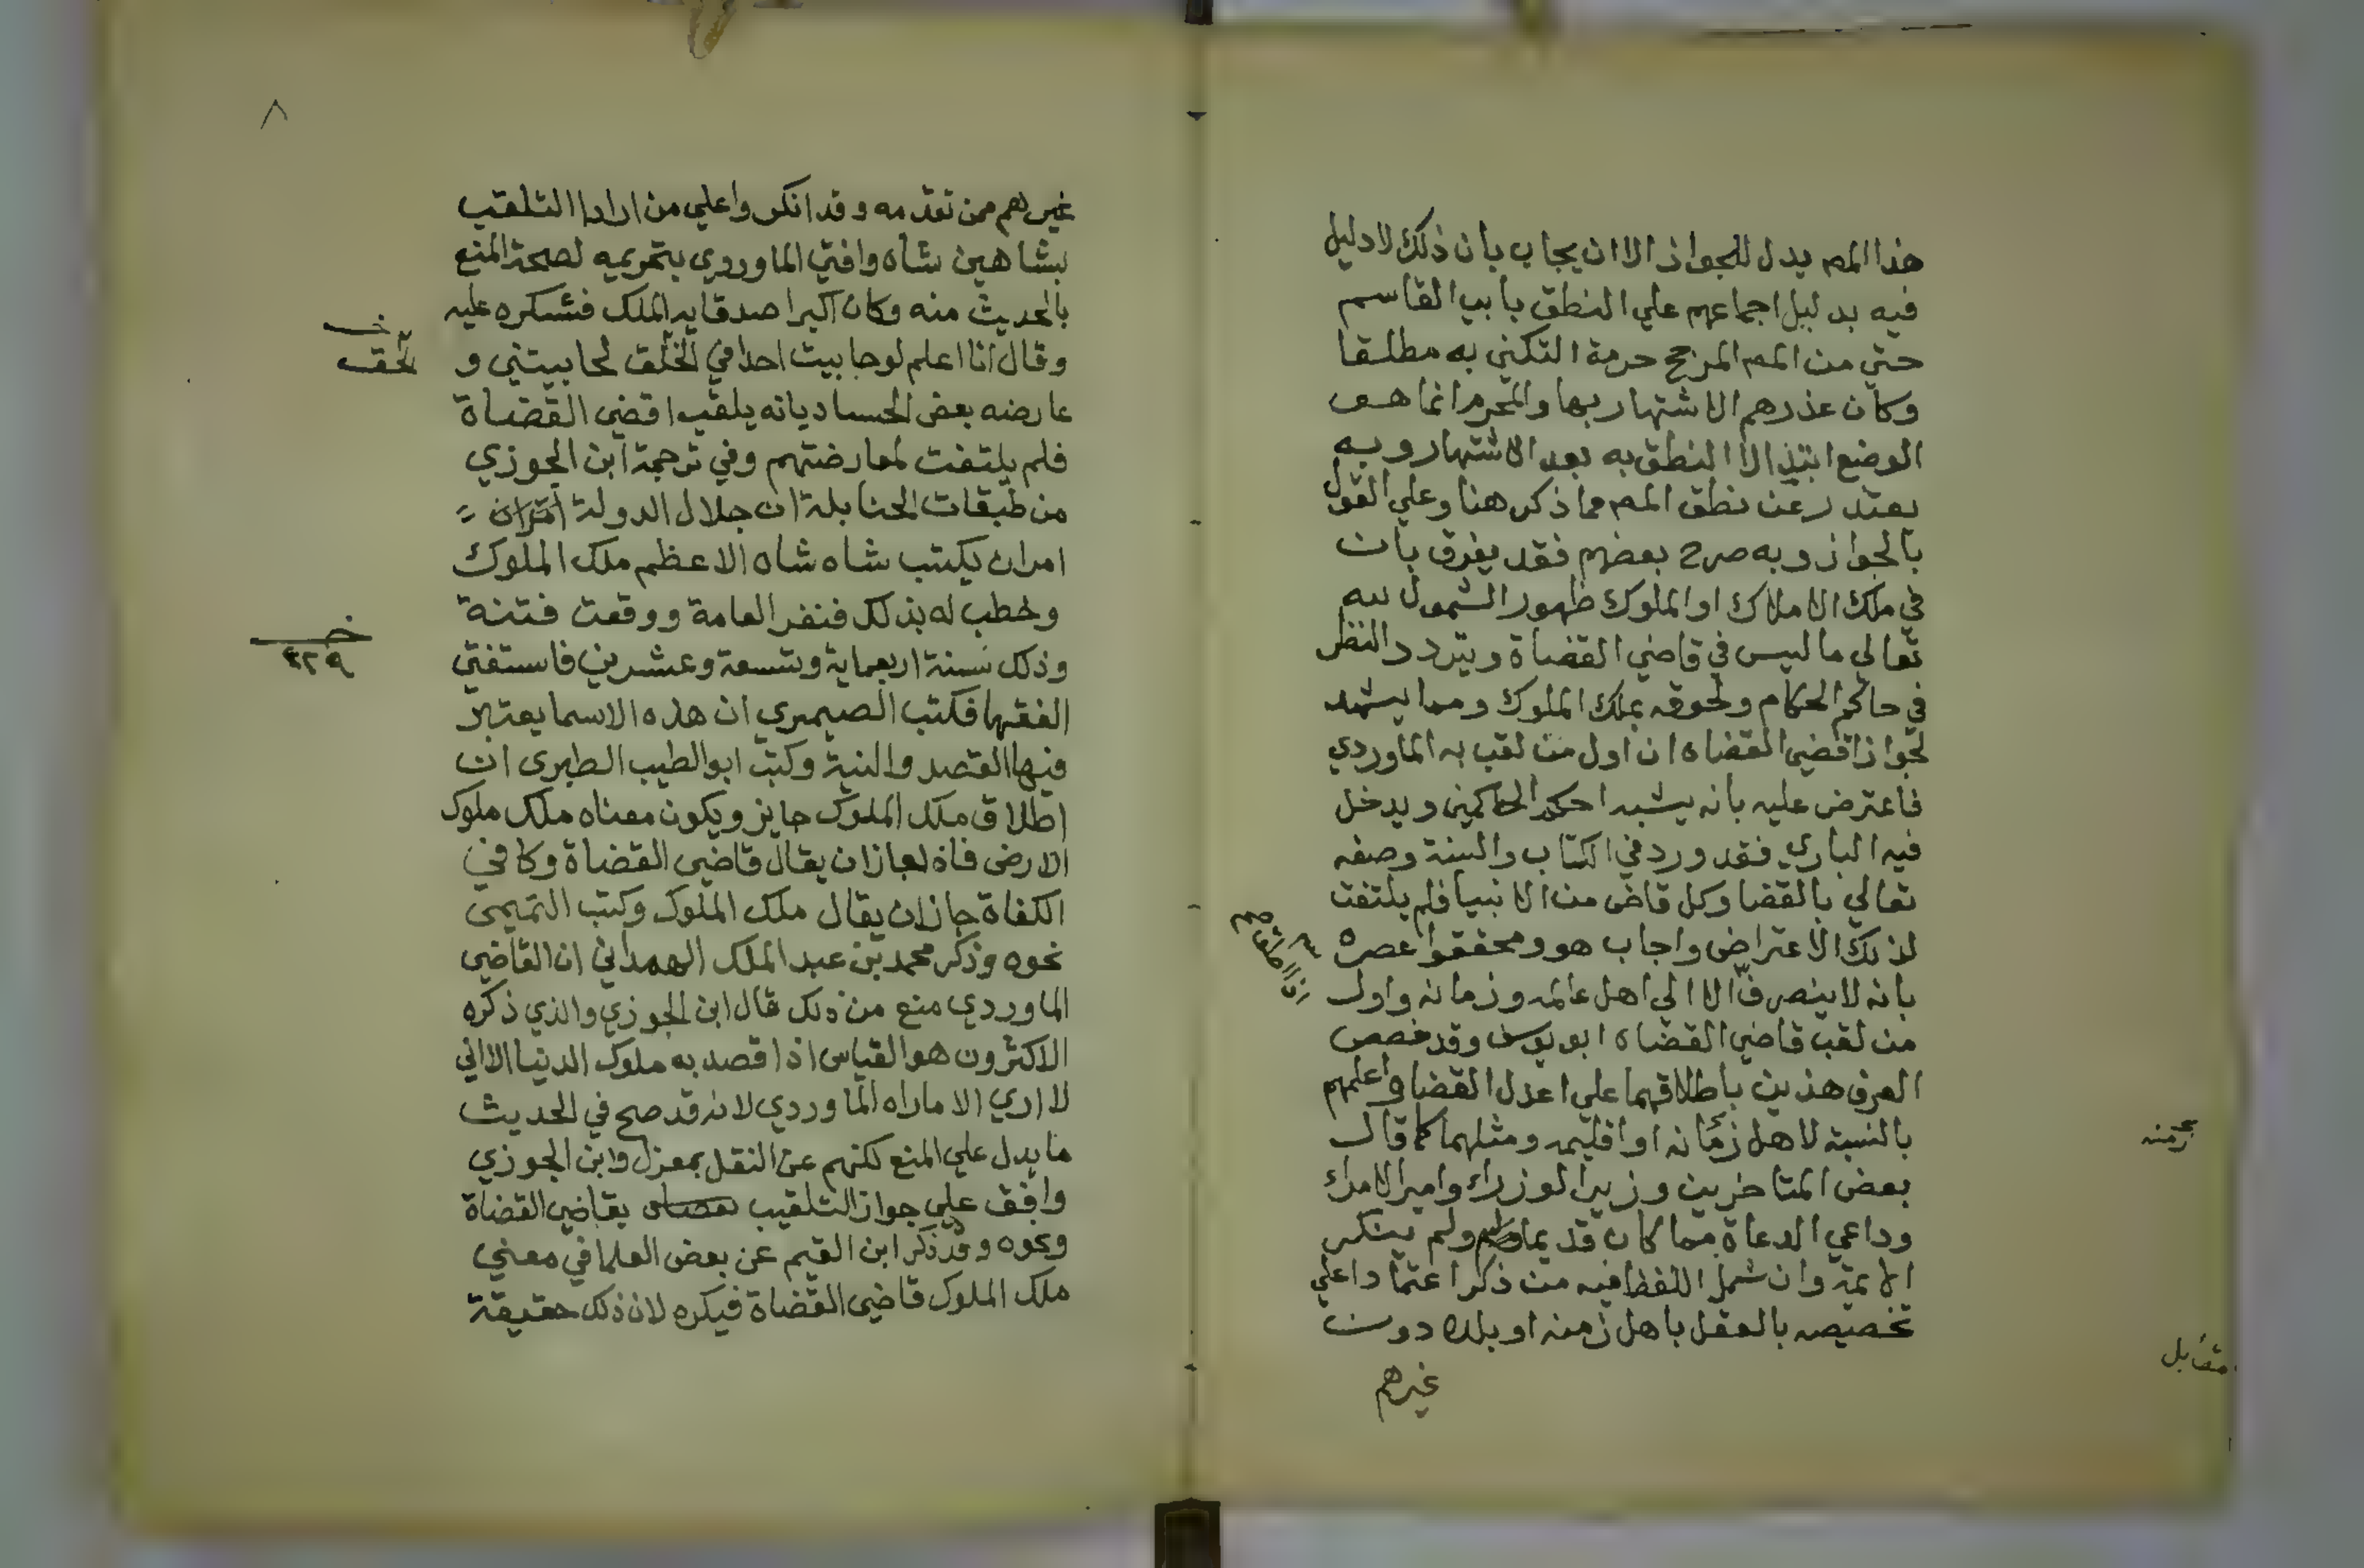 هذا المص يدل للجواز الا ان يجاب بان ذلك لا دليل
فيه بدليل اجماعهم علي النطق بابي القاسم
حتي من المص المرجح حرمة التكني به مطلقا
وكان عذرهم الاشتهار بها والمحرم انما هو
الوضع ابتدا لا النطق به بعد الاشتهار وبه
يعتذر عن نطق المص مما ذكر هنا وعلي القول
بالجواز وبه صرح بعضهم فقد يفرق بان
في ملك الاملاك او الملوك ظهور الشمول لله
تعالي ما ليس في قاضي القضاة ويتردد النظر
في حاكم الحكام ولحوقه بملك الملوك ومما يشهد
لجواز اقضي القضاه ان اول من لقب به الماوردي
فاعترض عليه بانه يشبه احكم الحاكمين ويدخل
فيه الباري فقد ورد في الكتاب والسنة وصفه
تعالي بالقضا وكل قاض من الانبيا فلم يلتفت
لذلك الاعتراض واجاب هو ومحققوا عصره
بانه لا ينصرف الا الي اهل عالمه وزمانه واول
من لقب قاضي القضاه ابو يوسف وقد خصص
العرف هذين باطلاقهما علي اعدل القضا واعلمهم
بالنسبة لاهل زمانه او اقليمه ومثلهما كما قال
بعض المتاخرين وزير الوزراء وامير الامراء
وداعي الدعاة مما كان قديما ولم ينكر
الايمة وان شمل اللفظ فيه من ذكر اعتمادا علي
تخصيصه بالعقل باهل زمنه او بلده دون
غيرهم
مقابل
٨
غيرهم ممن تقدمه وقد انكروا علي من اراد التلقب
بشاهين شاه وافتي الماوردي بتحريمه لصحة المنع
بالحديث منه وكان اكبر اصدقايه الملك فشكره عليه
وقال انا اعلم لو حابيت احدا في الخلق لحابيتني و
عارضه بعض الحساد بانه يلقب اقضي القضاة
فلم يلتفت لمعارضتهم وفي ترجمة ابن الجوزي
من طبقات الحنابلة ان جلال الدولة
امر ان يكتب شاه شاه الاعظم ملك الملوك
وخطب له بذلك فنفر العامة ووقعت فتنة
وذلك سنة اربعماية وتسعة وعشرين فاستفتي
الفقها فكتب الصيمري ان هذه الاسما يعتبر
فيها القصد والنية وكتب ابو الطيب الطبري ان
اطلاق ملك الملوك جايز ويكون معناه ملك ملوك
الارض فاذا جاز ان يقال قاضي القضاة وكافي
الكفاة جاز ان يقال ملك الملوك وكتب التميمي
نحوه وذكر محمد بن عبد الملك الهمداني ان القاضي
الماوردي منع من ذلك قال ابن الجوزي والذي ذكره
الاكثرون هو القياس اذا قصد به ملوك الدنيا الا اني
لا اري الا ما راه الماوردي لانه قد صح في الحديث
ما يدل علي المنع لكنهم عن النقل بمعزل وابن الجوزي
وافق علي جواز التلقيب بقاضي القضاة
ونحوه وقد ذكر ابن القيم عن بعض العلما في معني
ملك الملوك قاضي القضاة فيكره لان ذلك حقيقة
٤٢٩